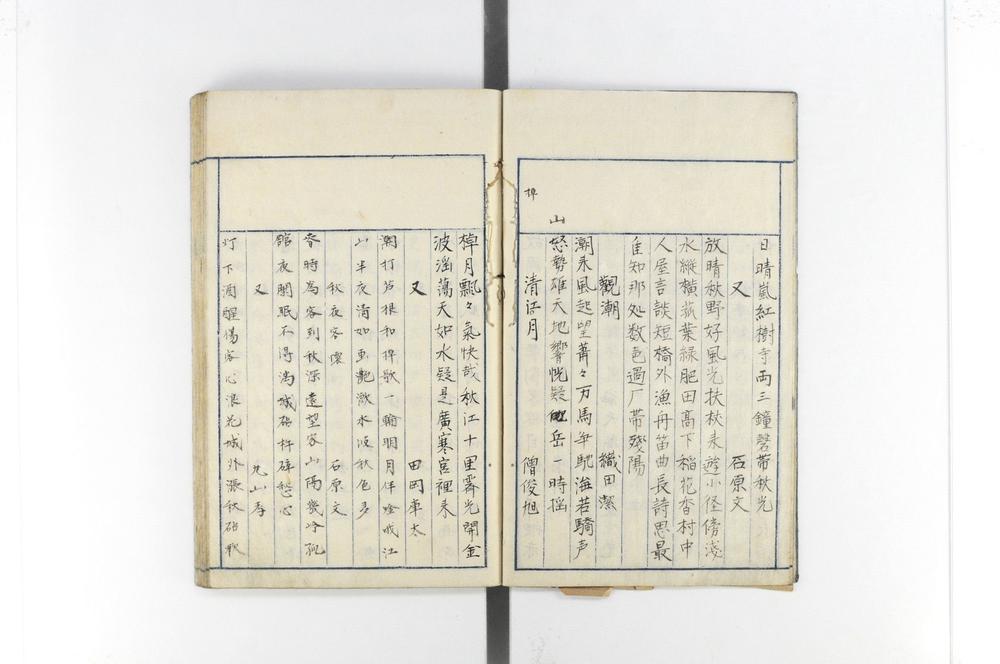 日晴嵐紅樹寺両三鐘磬帯秋光
又 石原文
放晴秋野好風光扶杖来遊小径傍浅
水縦横荻葉緑肥田高下稲花香村中
人屋言談短橋外漁舟笛曲長詩思最
佳知那処数色過厂帯残陽
観潮 織田潔
潮来風起望葊々万馬争馳海若驕声
山
怒勢雄天地響恍疑岳一時揺
清江月 僧俊旭
棹月飄々気快哉秋江十里霽光開金
波滔蕩天如水疑是廣寒宮裡来
又 田岡車太
潮打芦根和棹歌一輪明月伴吟哦江
山半夜清如画艶激水波秋色多
秋夜客懐 石原文
昏時為客到秋深遠望家山隔幾岑孤
館夜闌眠不得満城砧杵碎愁心
又 丸山孝
灯下酒醒傷客心浪花城外漲秋砧